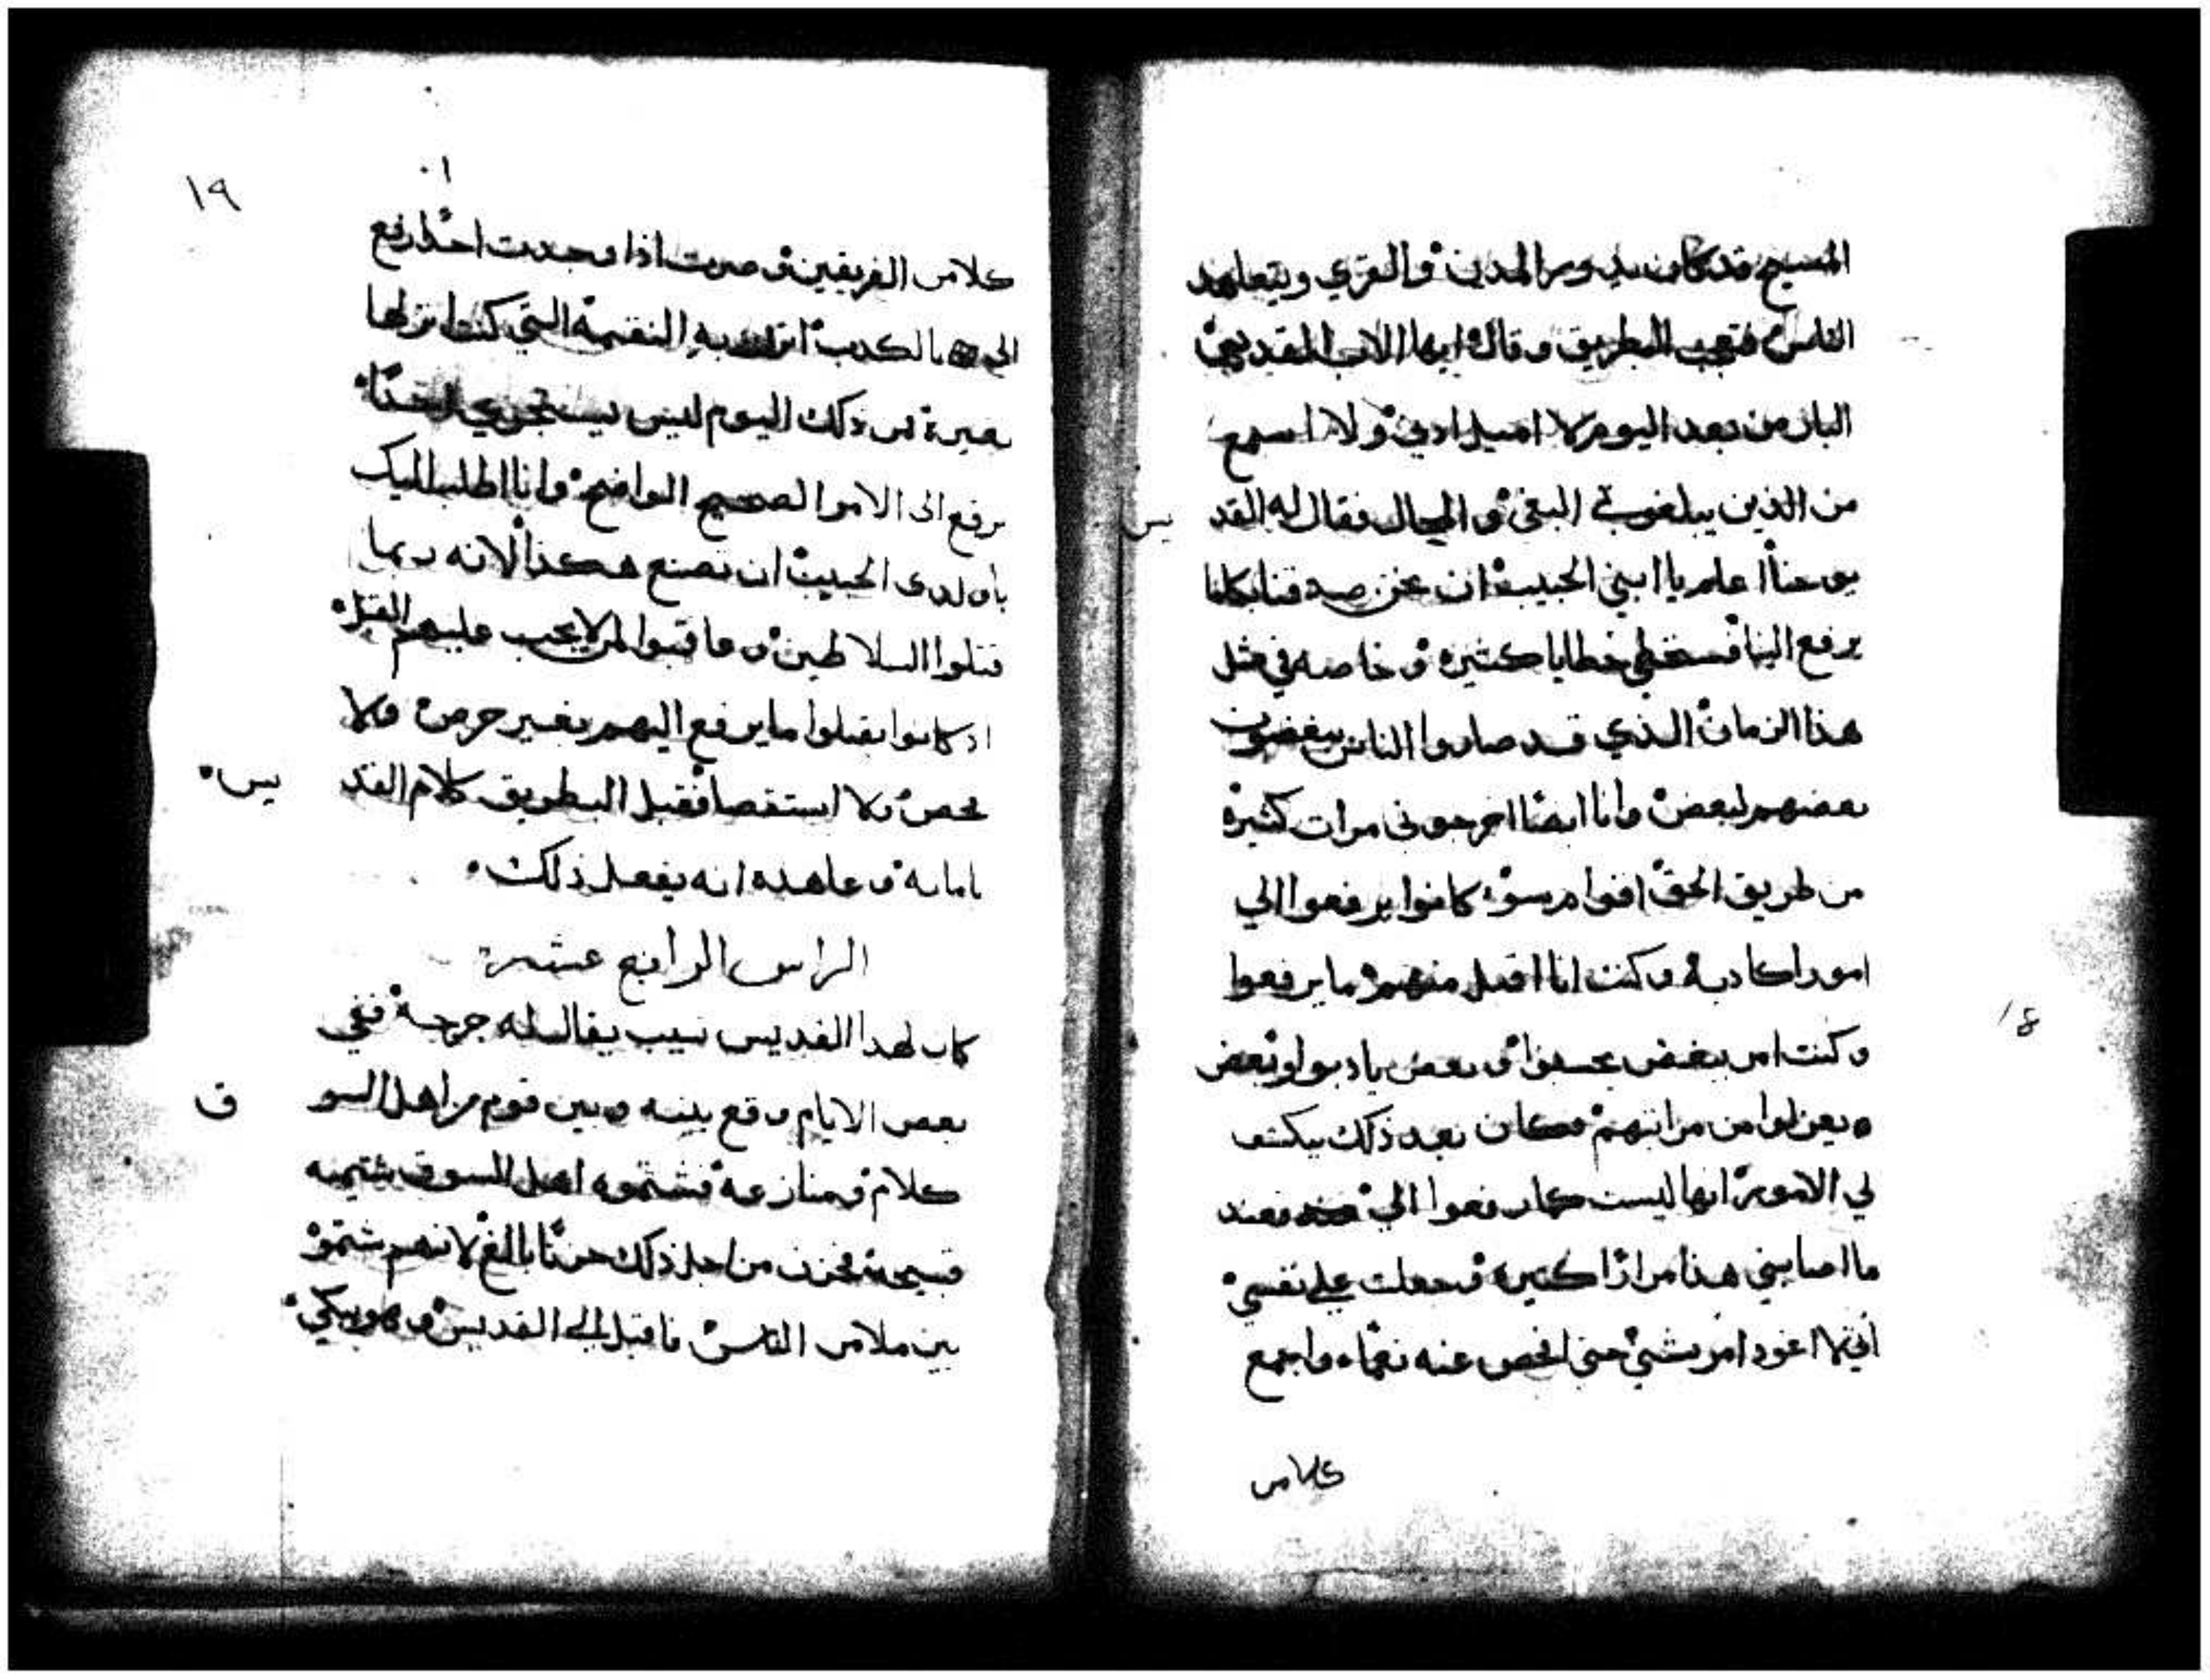 المسيح قد كان يدور المدن والقري ويتعاهد
الناس فتعجب البطريق وقال ايها الاب القديس
البار من بعد اليوم لا اميل ادني ولا اسمع
من الذين يبلغوني البغي والمحال فقال له القد يس
يوحنا اعلم يا ابني الحبيب ان نحن صدقنا بكلما
يرفع الينا فسنخطي خطايا كثيرة وخاصه في مثل
هذا الزمان الذي قد صاروا الناس يبغضون
بعضهم لبعض وانا ايضا اخرجوني مرات كثيرة
من طريق الحق اقوام سوء كانوا يرفعوا الي
امورا كادبة وكنت انا اقبل منهم ما يرفعوا
وكنت امر ببعض يحبسوا وبعض يادبوا وبعض
يعزلوا من مراتبهم فكان بعد ذلك ينكشف
لي الامور انها ليست كما رفعوا الي فعند
ما اصابني هذا مرارا كثيره فجعلت علي نفسي
اني لا اعود امر بشي حتي افحص عنه نعما واجمع
كلام
١٨
١٩
كلام الفريقين وصرت اذا وجدت احدا رفع
الي بالكدب انزلت به النقمة التي كنت انزلها
بغيرة فمن ذلك اليوم ليس يستجري احدا
يرفع الى الا الامر الصحيح الواضح وانا اطلب اليك
يا ولدى الحبيب ان تصنع هكذا لانه ربما
قتلوا السلاطين وعاقبوا لمن لا يجب عليهم القتل
اد كانوا يقبلوا ما يرفع اليهم بغير حرص ولا
فحص ولا استقصا فقبل البطريق كلام القد يس
بامانة وعاهده انه يفعل ذلك
الراس الرابع عشر
كان لهدا القديس نسيب يقال له جرجة ففي
بعض الايام وقع بينه وبين قوم من اهل السو ق
كلام ومنازعة فشتموه اهل السوق شتيمه
قبيحة فحزن من اجل ذلك حزنا بالغ لانهم شتموه
بين ملا من الناس فاقبل الي القديس وهو يبكي